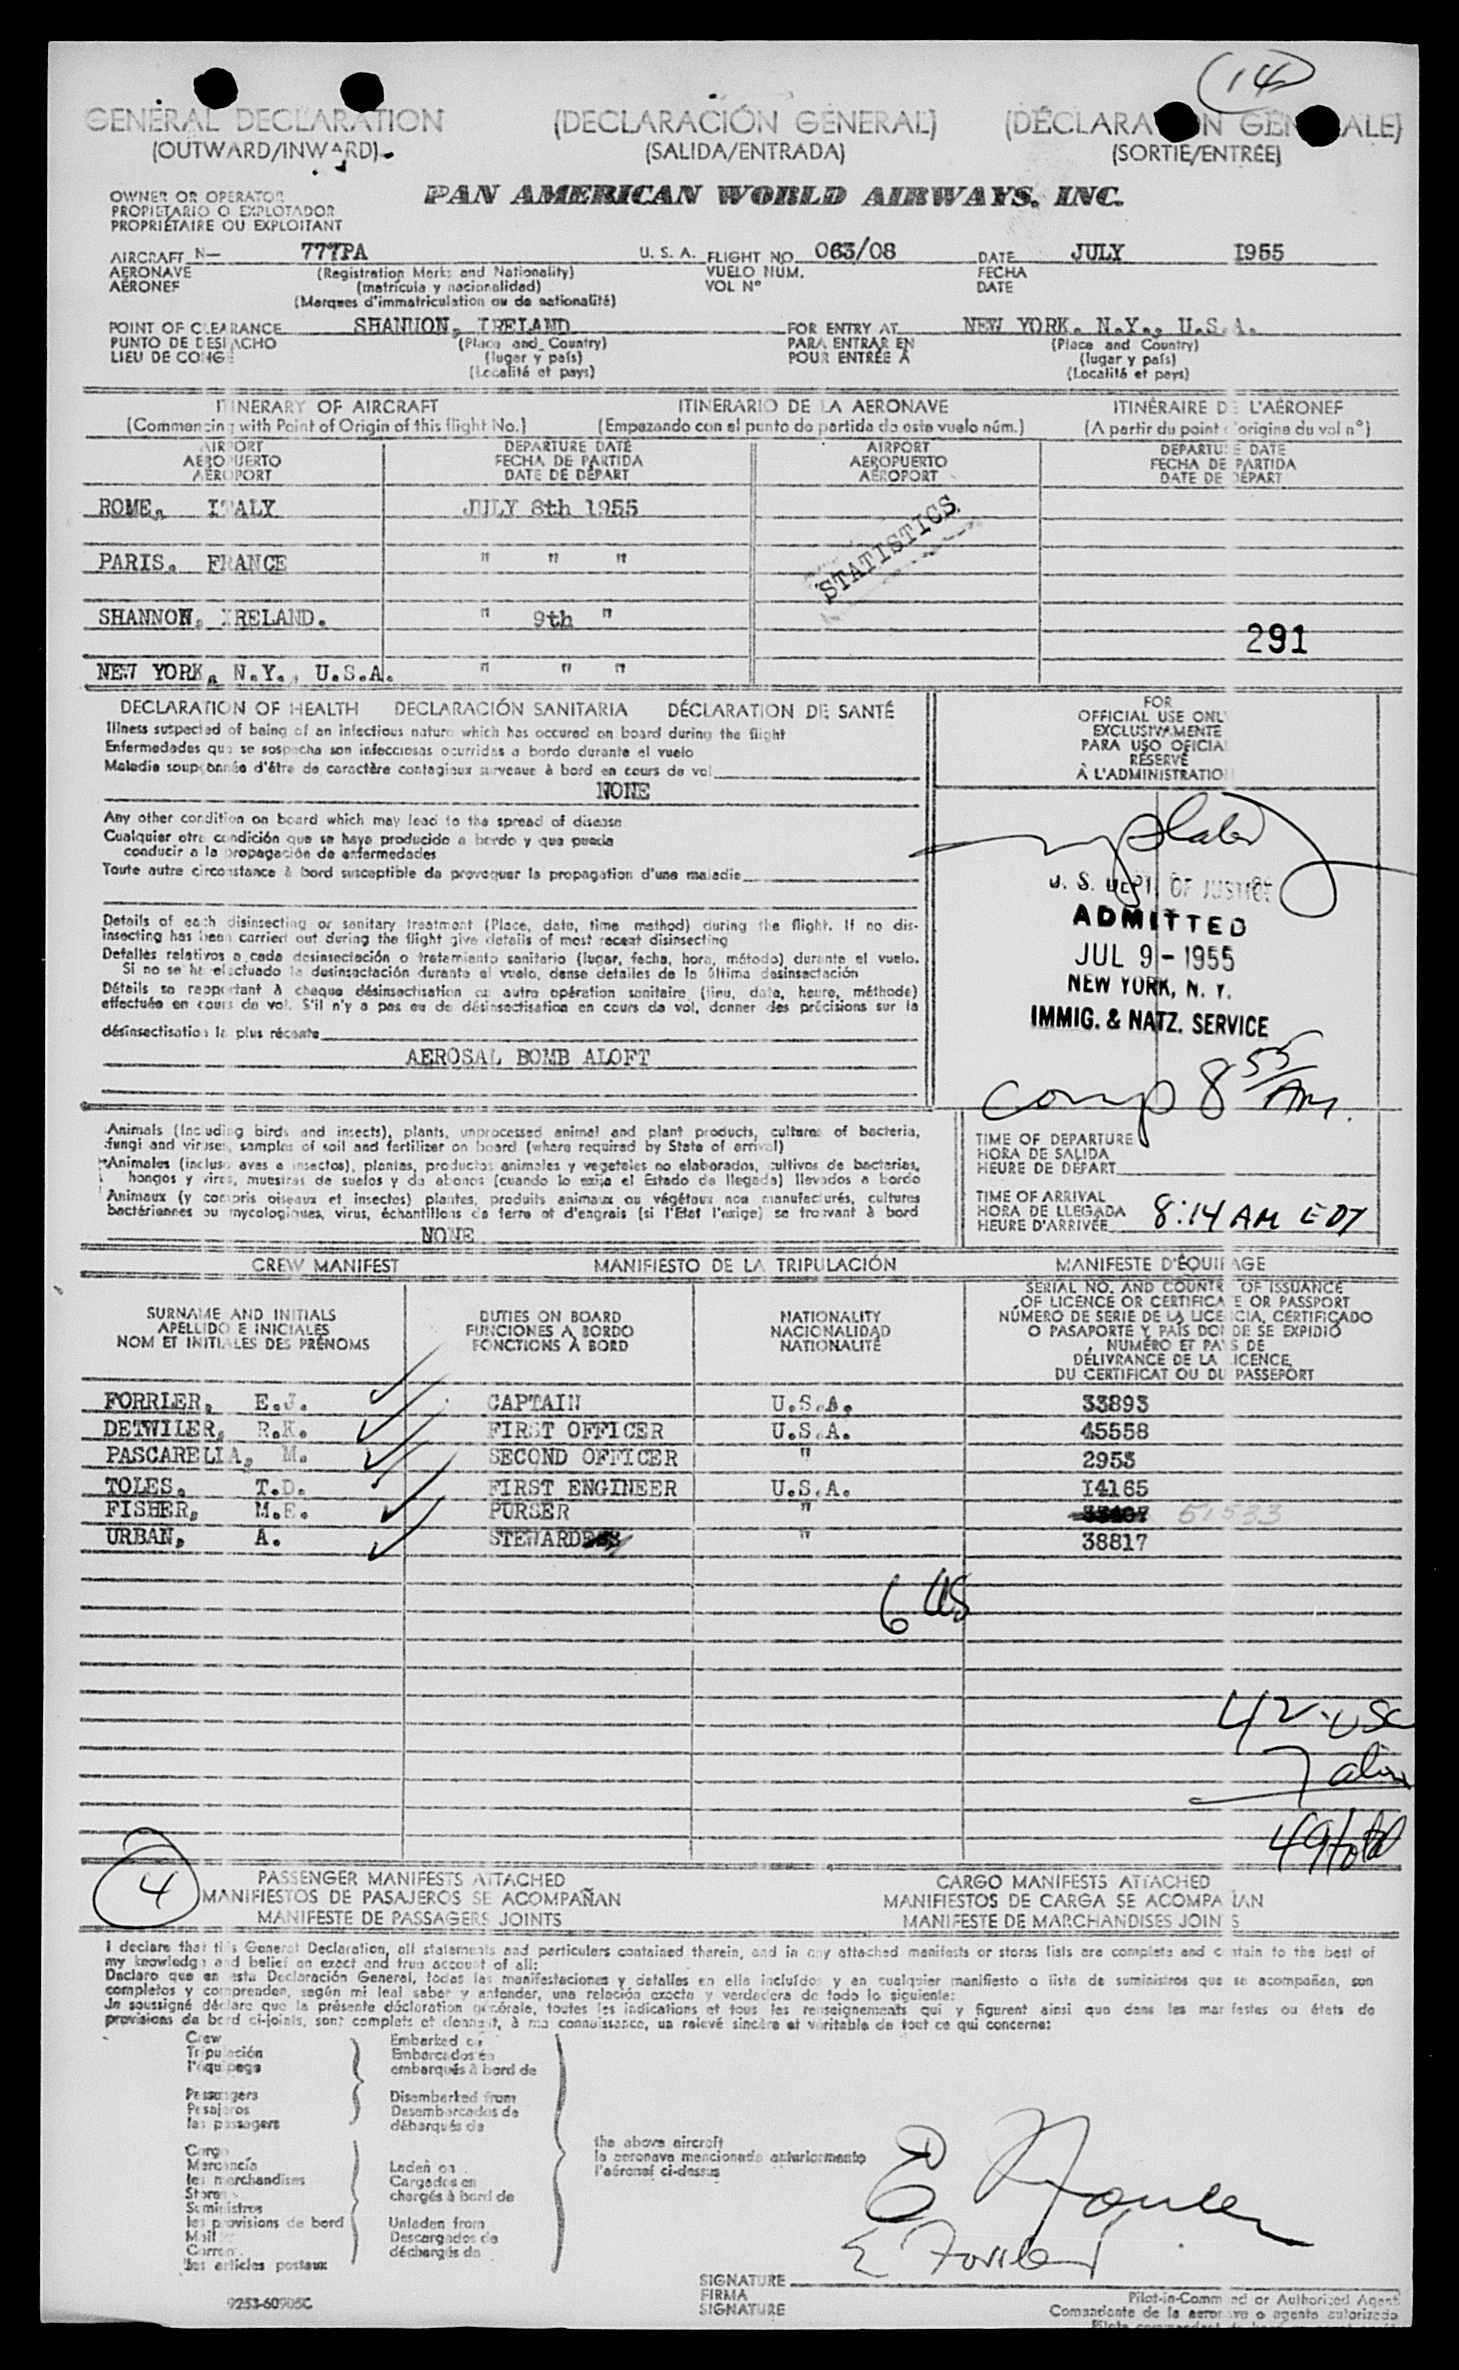 14
GENERAL DECLARATION (DECLARACIÓN GENERAL) (DÉCLARA N GEN ALE)
(OUTWARD/INWARD) (SALIDA/ENTRADA) (SORTIE/ENTRÉE)
PAN AMERICAN WORLD AIRWAYS, INC.
OWNER OR OPERATOR
PROPIETARIO O EXPLOTADOR
PROPRIÉTAIRE OU EXPLOITANT
AIRCRAFT N— 777PA U. S. A. FLIGHT NO. 063/08 DATE JULY 1955
AERONAVE (Registration Marks and Nationality) VUELO NUM. FECHA
AÉRONEF (matrícula y nacionalidad) VOL Nº DATE
(Marques d'immatriculation ou de nationalité)
POINT OF CLEARANCE SHANNON, IRELAND FOR ENTRY AT NEW YORK. N.Y., U.S.A.
PUNTO DE DESPACHO (Place and Country) PARA ENTRAR EN (Place and Country)
LIEU DE CONGÉ (lugar y país) POUR ENTRÉE À (lugar y país)
(Localité et pays) (Localité et pays)
ITINERARY OF AIRCRAFT ITINERARIO DE LA AERONAVE ITINÉRAIRE DE L'AÉRONEF
(Commencing with Point of Origin of this flight No.) (Empezando con el punto de partida de este vuelo núm.) (A partir du point d'origine du vol nº)
AIRPORT DEPARTURE DATE AIRPORT DEPARTURE DATE
AEROPUERTO FECHA DE PARTIDA AEROPUERTO FECHA DE PARTIDA
AÉROPORT DATE DE DÉPART AÉROPORT DATE DE DÉPART
ROME, ITALY JULY 8th 1955
STATISTICS
PARIS. FRANCE " " "
SHANNON, IRELAND. " 9th "
291
NEW YORK, N.Y., U.S.A. " " "
DECLARATION OF HEALTH DECLARACIÓN SANITARIA DÉCLARATION DE SANTÉ
Illness suspected of being of an infectious nature which has occured on board during the flight
Enfermedades que se sospecha son infecciosas ocurridas a bordo durante el vuelo
Maladie soupçonnée d'être de caractère contagieux survenue à bord en cours de vol
NONE
Any other condition on board which may lead to the spread of disease
Cualquier otra condición que se haya producido a bordo y que pueda
conducir a la propagación de enfermedades
Toute autre circonstance à bord susceptible de provoquer la propagation d'une maladie
Details of each disinsecting or sanitary treatment (Place, date, time method) during the flight. If no dis-
insecting has been carried out during the flight give details of most recent disinsecting
Detalles relativos a cada desinsectación o tratamiento sanitario (lugar, fecha, hora, método) durante el vuelo.
Si no se ha efectuado la desinsectación durante el vuelo, dense detalles de la última desinsectación
Détails se rapportant à chaque désinsectisation ou autre opération sanitaire (lieu, date, heure, méthode)
effectuée en cours de vol. S'il n'y a pas eu de désinsectisation en cours de vol, donner des précisions sur la
désinsectisation la plus récente
AEROSAL BOMB ALOFT
FOR
OFFICIAL USE ONLY
EXCLUSIVAMENTE
PARA USO OFICIAL
RÉSERVÉ
À L'ADMINISTRATION
U. S. DEPT. OF JUSTICE
ADMITTED
JUL 9 - 1955
NEW YORK, N. Y.
IMMIG. & NATZ. SERVICE
comp 8 55 AM.
Animals (Including birds and insects), plants, unprocessed animal and plant products, cultures of bacteria,
fungi and viruses, samples of soil and fertilizer on board (where required by State of arrival)
Animales (incluso aves e insectos), plantas, productos animales y vegetales no elaborados, cultivos de bacterias,
hongos y virus, muestras de suelos y de abonos (cuando lo exija el Estado de llegada) llevados a bordo
Animaux (y compris oiseaux et insectes) plantes, produits animaux ou végétaux non manufacturés, cultures
bactériennes ou mycologiques, virus, échantillons de terre et d'engrais (si l'Etat l'exige) se trouvant à bord
NONE
TIME OF DEPARTURE
HORA DE SALIDA
HEURE DE DÉPART
TIME OF ARRIVAL
HORA DE LLEGADA
HEURE D'ARRIVÉE 8:14 AM EDT
CREW MANIFEST MANIFIESTO DE LA TRIPULACIÓN MANIFESTE D'ÉQUIPAGE
SURNAME AND INITIALS
APELLIDO E INICIALES
NOM ET INITIALES DES PRÉNOMS
DUTIES ON BOARD
FUNCIONES A BORDO
FONCTIONS À BORD
NATIONALITY
NACIONALIDAD
NATIONALITÉ
SERIAL NO. AND COUNTRY OF ISSUANCE
OF LICENCE OR CERTIFICATE OR PASSPORT
NÚMERO DE SERIE DE LA LICENCIA, CERTIFICADO
O PASAPORTE Y PAÍS DONDE SE EXPIDIÓ
NUMÉRO ET PAYS DE
DÉLIVRANCE DE LA LICENCE,
DU CERTIFICAT OU DU PASSEPORT
FORRLER, E.J. CAPTAIN U.S.A. 33893
DETWILER, R.K. FIRST OFFICER U.S.A. 45558
PASCARELLA, M. SECOND OFFICER " 2953
TOLES, T.D. FIRST ENGINEER U.S.A. 14165
FISHER, M.E. PURSER " 33407 51533
URBAN, A. STEWARDESS " 38817
6 US
42-USC
7 alien
49 total
4
PASSENGER MANIFESTS ATTACHED CARGO MANIFESTS ATTACHED
MANIFIESTOS DE PASAJEROS SE ACOMPAÑAN MANIFIESTOS DE CARGA SE ACOMPAÑAN
MANIFESTE DE PASSAGERS JOINTS MANIFESTE DE MARCHANDISES JOINTS
I declare that this General Declaration, all statements and particulars contained therein, and in any attached manifests or stores lists are complete and contain to the best of
my knowledge and belief an exact and true account of all:
Declaro que en esta Declaración General, todas las manifestaciones y detalles en ella incluídos y en cualquier manifiesto o lista de suministros que se acompañan, son
completos y comprenden, según mi leal saber y entender, una relación exacta y verdadera de todo lo siguiente:
Je soussigné déclare que la présente déclaration générale, toutes les indications et tous les renseignements qui y figurent ainsi que dans les manifestes ou états de
provisions de bord ci-joints, sont complets et donnent, à ma connaissance, un relevé sincère et véritable de tout ce qui concerne:
Crew
Tripulación
l'équipage
Passengers
Pasajeros
les passagers
Cargo
Mercancía
les marchandises
Stores
Suministros
les provisions de bord
Mail
Correo
les articles postaux
Embarked on
Embarcados en
embarqués à bord de
Disembarked from
Desembarcados de
débarqués de
Laden on
Cargados en
chargés à bord de
Unladen from
Descargados de
déchargés de
the above aircraft
la aeronave mencionada anteriormente
l'aéronef ci-dessus
E Forrler
SIGNATURE
FIRMA
SIGNATURE
Pilot-in-Command or Authorized Agent
Comandante de la aeronave o agente autorizado
9253-60905C